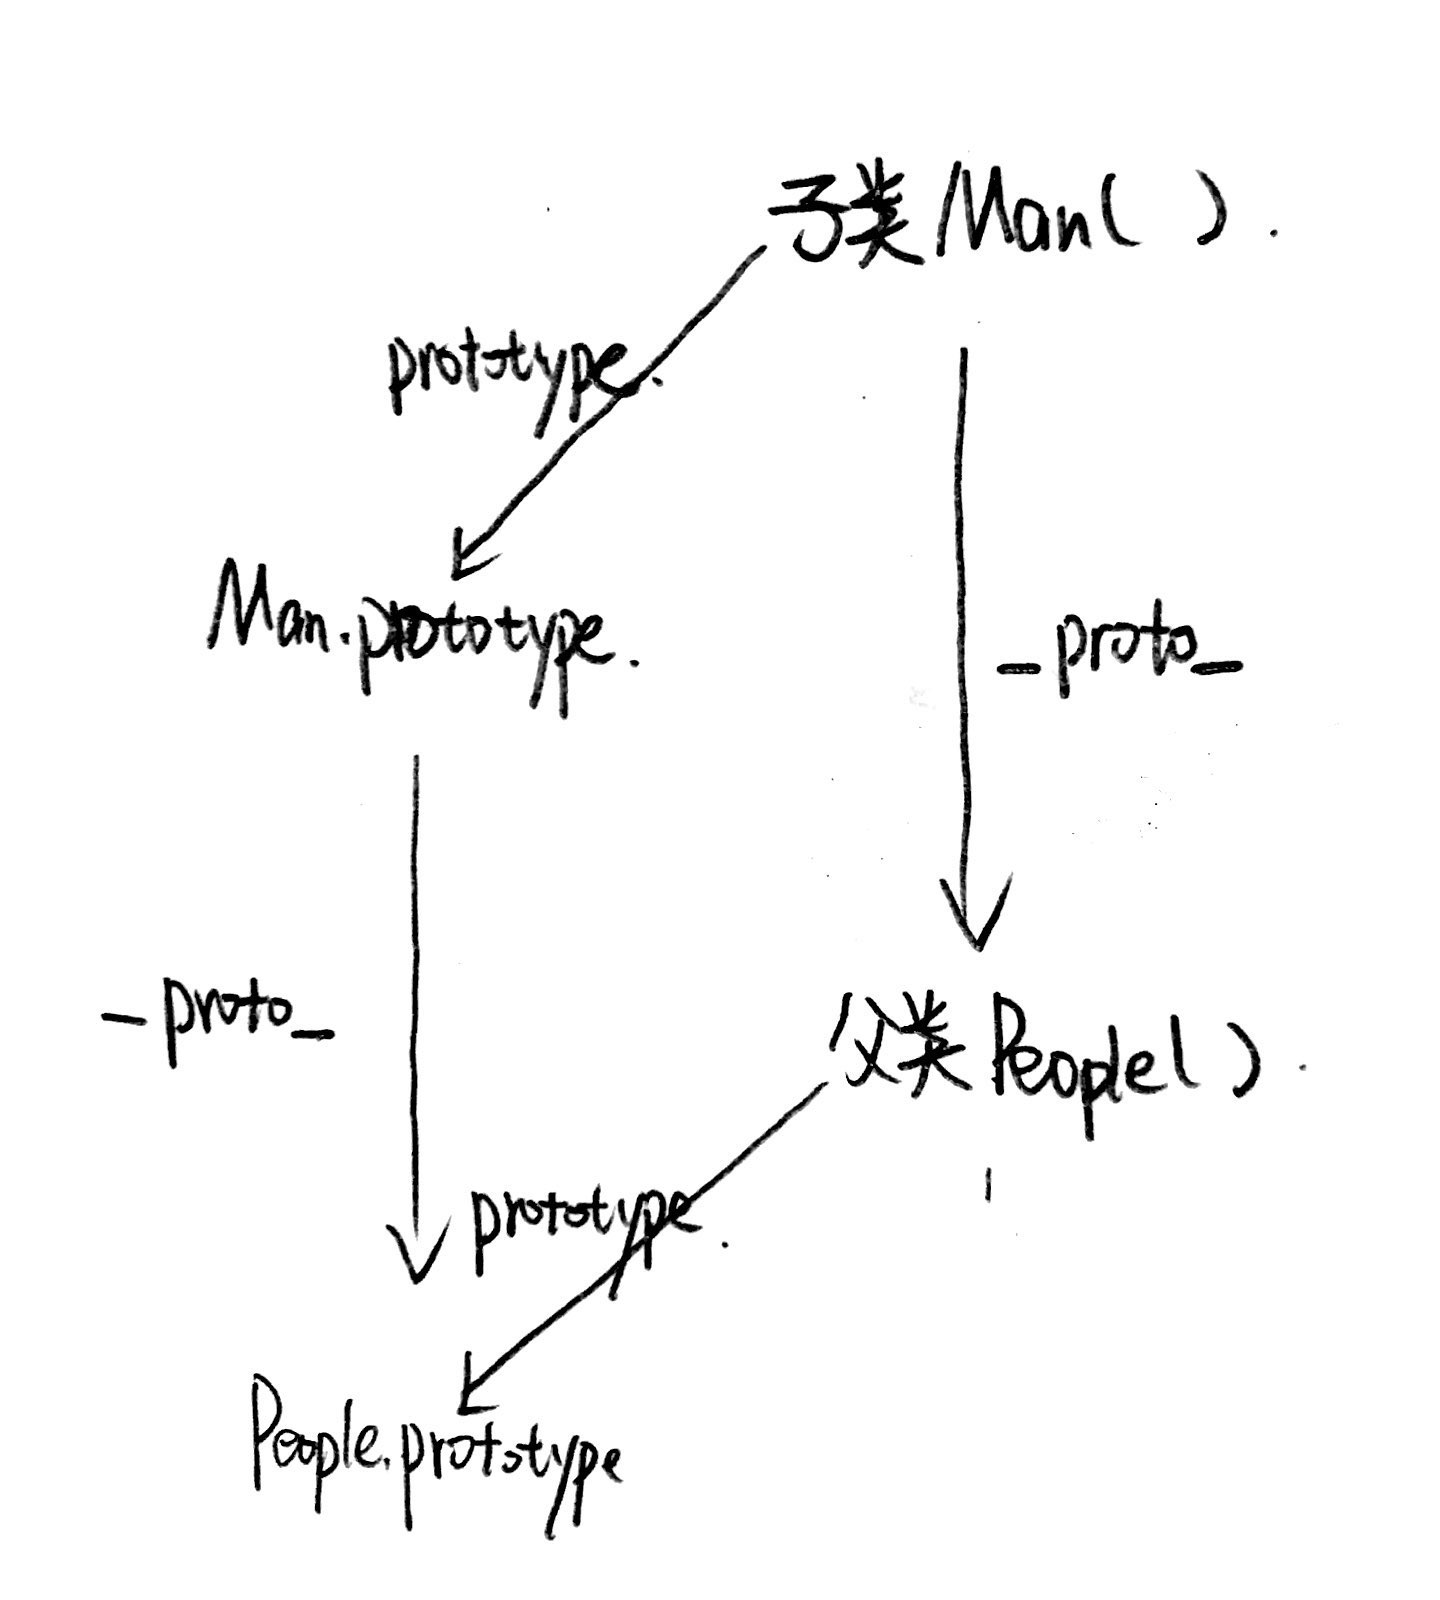 子类Man( ).
prototype.
Man.prototype.
_proto_
_proto_
父类People( ).
prototype.
People.prototype